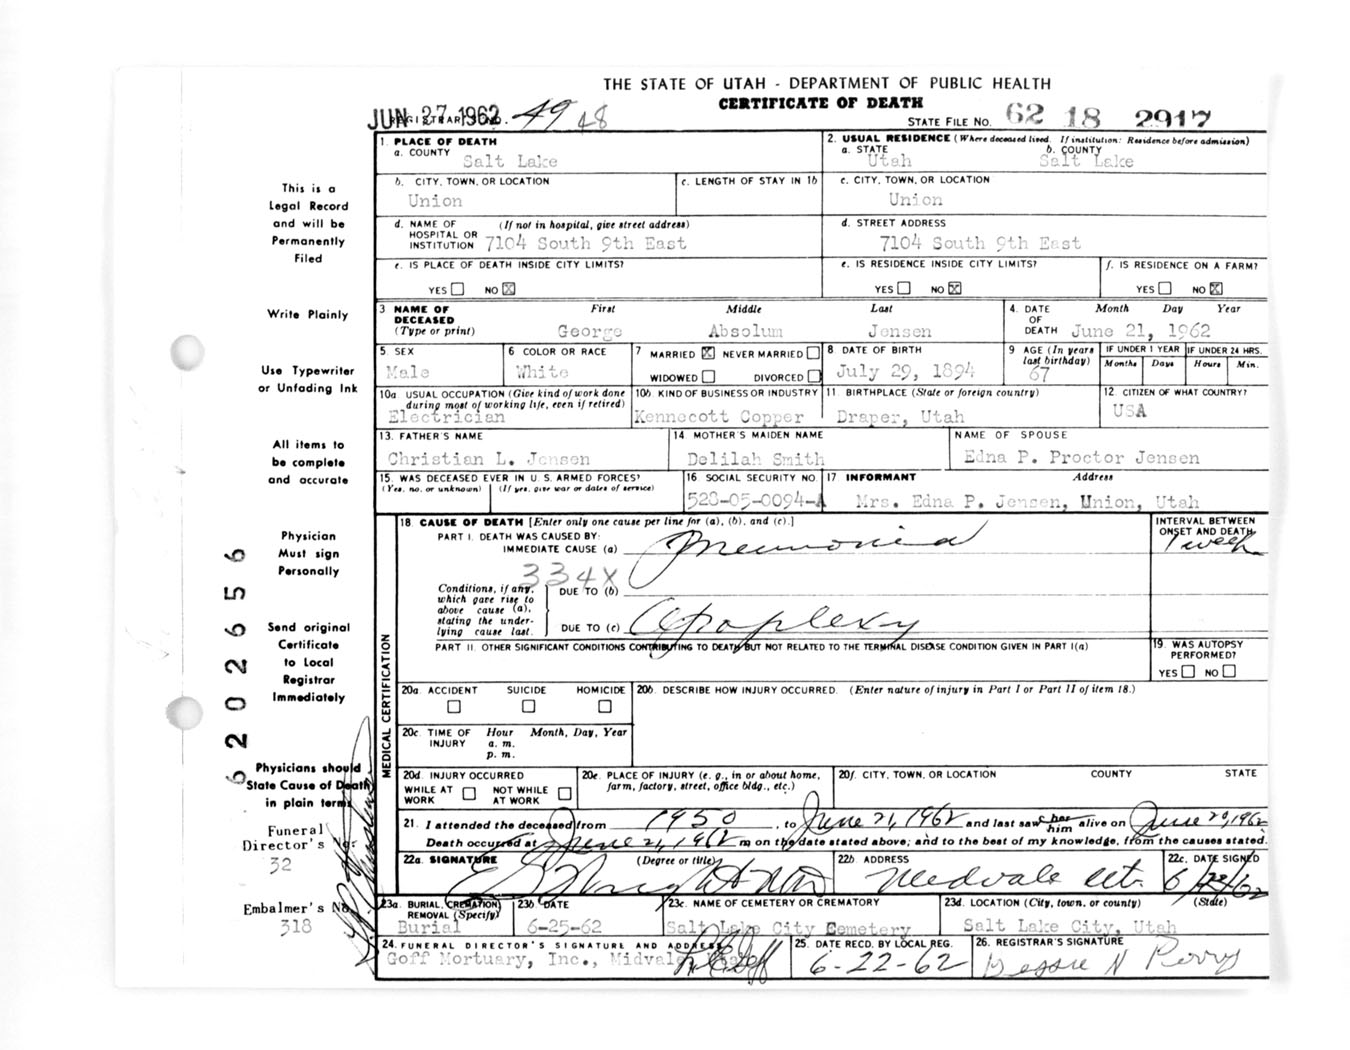 THE STATE OF UTAH - DEPARTMENT OF PUBLIC HEALTH
CERTIFICATE OF DEATH
JUN 27 1962 REGISTRAR'S NO. 49 48
STATE FILE NO. 62 18 2917
1. PLACE OF DEATH
a. COUNTY Salt Lake
2. USUAL RESIDENCE (Where deceased lived. If institution: Residence before admission)
a. STATE Utah b. COUNTY Salt Lake
b. CITY, TOWN, OR LOCATION Union
c. LENGTH OF STAY IN 1b
c. CITY, TOWN, OR LOCATION Union
d. NAME OF HOSPITAL OR INSTITUTION (If not in hospital, give street address) 7104 South 9th East
d. STREET ADDRESS 7104 South 9th East
e. IS PLACE OF DEATH INSIDE CITY LIMITS?
YES NO X
e. IS RESIDENCE INSIDE CITY LIMITS?
YES NO X
f. IS RESIDENCE ON A FARM?
YES NO X
3 NAME OF DECEASED (Type or print) First Middle Last
George Absolum Jensen
4. DATE OF DEATH Month Day Year
June 21, 1962
5. SEX Male
6 COLOR OR RACE White
7 MARRIED X NEVER MARRIED
WIDOWED DIVORCED
8. DATE OF BIRTH July 29, 1894
9 AGE (In years last birthday) 67
IF UNDER 1 YEAR Months Days
IF UNDER 24 HRS. Hours Min.
10a. USUAL OCCUPATION (Give kind of work done during most of working life, even if retired)
Electrician
10b. KIND OF BUSINESS OR INDUSTRY
Kennocott Copper
11. BIRTHPLACE (State or foreign country)
Draper, Utah
12. CITIZEN OF WHAT COUNTRY?
USA
13. FATHER'S NAME
Christian L. Jensen
14 MOTHER'S MAIDEN NAME
Delilah Smith
NAME OF SPOUSE
Edna P. Proctor Jensen
15. WAS DECEASED EVER IN U.S. ARMED FORCES?
(Yes, no, or unknown) (If yes, give war or dates of service)
16 SOCIAL SECURITY NO.
528-05-0094-A
17 INFORMANT Address
Mrs. Edna P. Jensen, Union, Utah
MEDICAL CERTIFICATION
18. CAUSE OF DEATH [Enter only one cause per line for (a), (b), and (c).]
PART I. DEATH WAS CAUSED BY:
IMMEDIATE CAUSE (a) Pneumonia
INTERVAL BETWEEN ONSET AND DEATH
1 week
334X
Conditions, if any, which gave rise to above cause (a), stating the underlying cause last.
DUE TO (b)
DUE TO (c) Apoplexy
PART II. OTHER SIGNIFICANT CONDITIONS CONTRIBUTING TO DEATH BUT NOT RELATED TO THE TERMINAL DISEASE CONDITION GIVEN IN PART I(a)
19. WAS AUTOPSY PERFORMED?
YES NO
20a. ACCIDENT SUICIDE HOMICIDE
20b. DESCRIBE HOW INJURY OCCURRED. (Enter nature of injury in Part I or Part II of item 18.)
20c. TIME OF INJURY Hour Month, Day, Year
a. m.
p. m.
20d. INJURY OCCURRED
WHILE AT WORK NOT WHILE AT WORK
20e. PLACE OF INJURY (e. g., in or about home, farm, factory, street, office bldg., etc.)
20f. CITY, TOWN, OR LOCATION COUNTY STATE
21. I attended the deceased from 1950, to June 21, 1962 and last saw her him alive on June 20, 1962
Death occurred at June 21, 1962 m on the date stated above; and to the best of my knowledge, from the causes stated.
22a. SIGNATURE (Degree or title)
22b. ADDRESS Midvale Ut.
22c. DATE SIGNED 6/22/62
23a. BURIAL, CREMATION, REMOVAL (Specify)
Burial
23b. DATE
6-25-62
23c. NAME OF CEMETERY OR CREMATORY
Salt Lake City Cemetery
23d. LOCATION (City, town, or county) (State)
Salt Lake City, Utah
24. FUNERAL DIRECTOR'S SIGNATURE AND ADDRESS
Goff Mortuary, Inc., Midvale, Utah
25. DATE RECD. BY LOCAL REG.
6-22-62
26. REGISTRAR'S SIGNATURE
Bessie N Perry
This is a
Legal Record
and will be
Permanently
Filed
Write Plainly
Use Typewriter
or Unfading Ink
All items to
be complete
and accurate
Physician
Must sign
Personally
Send original
Certificate
to Local
Registrar
Immediately
Physicians should
State Cause of Death
in plain terms
Funeral
Director's No.
32
Embalmer's No.
318
6202656